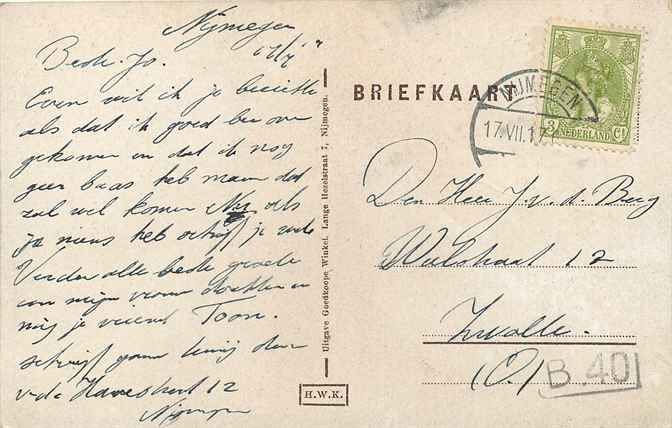 Nijmegen
17/7 '17
Beste Jo.
Even wil ik je berichte
als dat ik goed ben over
gekomen en dat ik nog
geen baas heb maar dat
zal wel komen Nu als
je nieuws heb schrijf je
Verder alle beste groete
van mijn vrouw
mij je vriend Toon.
schrijf
v. de 12
Nijmegen
Uitgave Goedkoope Winkel, Lange Hezelstraat 7, Nijmegen.
H.W.K.
BRIEFKAART
NIJMEGEN
17.VII.17
3 Ct
NEDERLAND
Den Heer J. v. d. Berg
Walstraat 12
Zwolle.
(O.)
B.40